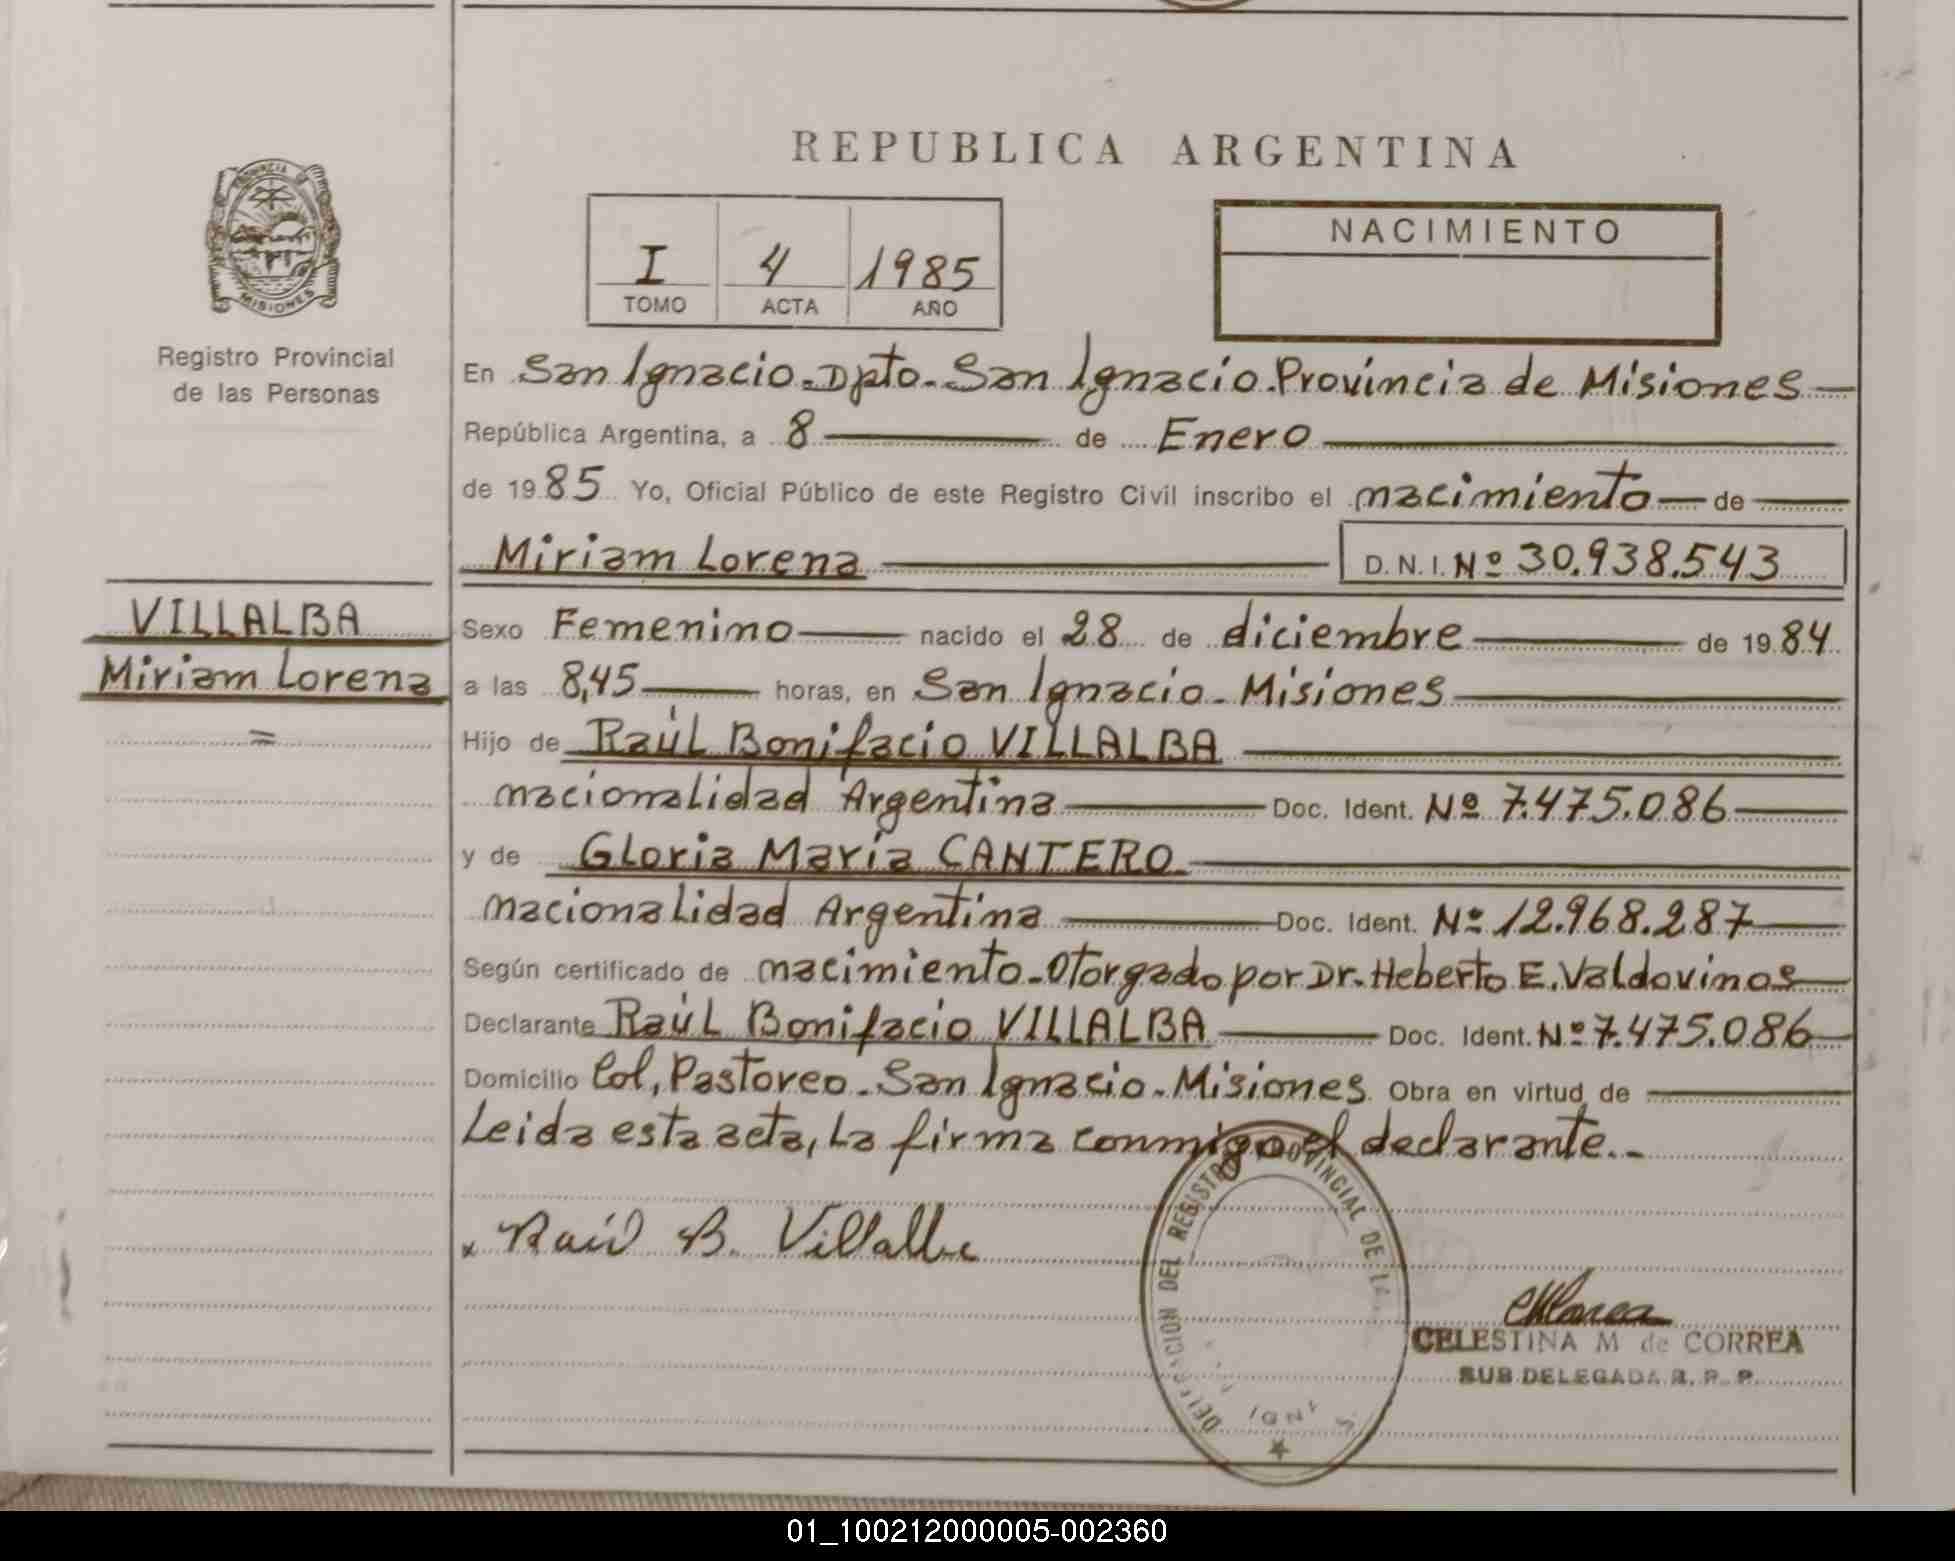 REPUBLICA ARGENTINA
PROVINCIA DE
MISIONES
Registro Provincial
de las Personas
I 4 1985
TOMO ACTA AÑO
NACIMIENTO
En San Ignacio. Dpto. San Ignacio. Provincia de Misiones
República Argentina, a 8 de Enero
de 1985 Yo, Oficial Público de este Registro Civil inscribo el nacimiento de
Miriam Lorena D.N.I. Nº 30.938.543
VILLALBA
Miriam Lorena
=
Sexo Femenino nacido el 28 de diciembre de 1984
a las 8,45 horas, en San Ignacio. Misiones
Hijo de Raúl Bonifacio VILLALBA
nacionalidad Argentina Doc. Ident. Nº 7.475.086
y de Gloria María CANTERO
nacionalidad Argentina Doc. Ident. Nº 12.968.287
Según certificado de nacimiento. Otorgado por Dr. Heberto E. Valdovinos
Declarante Raúl Bonifacio VILLALBA Doc. Ident. Nº 7.475.086
Domicilio Col, Pastoreo. San Ignacio. Misiones. Obra en virtud de
Leida esta acta, La firma conmigo el declarante.-
x Raúl B. Villalba
DEL REGISTRO PROVINCIAL DE
CELESTINA M de CORREA
SUB DELEGADA R. P. P.
01_100212000005-002360